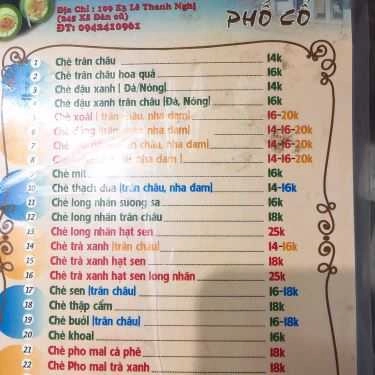 Địa Chỉ : 109 K3 Lê Thanh Nghị
PHỐ CỔ
(245 Xã Đàn cũ)
ĐT: 0942410961
1 Chè trân châu 14k
2 Chè trân châu hoa quả 16k
3 Chè đậu xanh | Đá/Nóng| 14k
4 Chè đậu xanh trân châu |Đá, Nóng| 16k
5 Chè xoài | trân châu, nha đam| 16-20k
6 Chè trân châu, nha đam| 14-16-20k
7 Chè trân châu, nha đam| 14-16-20k
8 nha đam | 14-16-20k
9 Chè mít 16k
10 Chè thạch dừa |trân châu, nha đam| 14-16k
11 Chè long nhãn sương sa 16k
12 Chè long nhãn trân châu 18k
13 Chè long nhãn hạt sen 25k
14 Chè trà xanh | trân châu| 14-16k
15 Chè trà xanh hạt sen 18k
16 Chè trà xanh hạt sen long nhãn 25k
17 Chè sen |trân châu| 16-18k
18 Chè thập cẩm 18k
19 Chè bưởi |trân châu| 16-18k
20 Chè khoai 16k
21 Chè pho mai cà phê 18k
22 Chè Pho mai trà xanh 18k